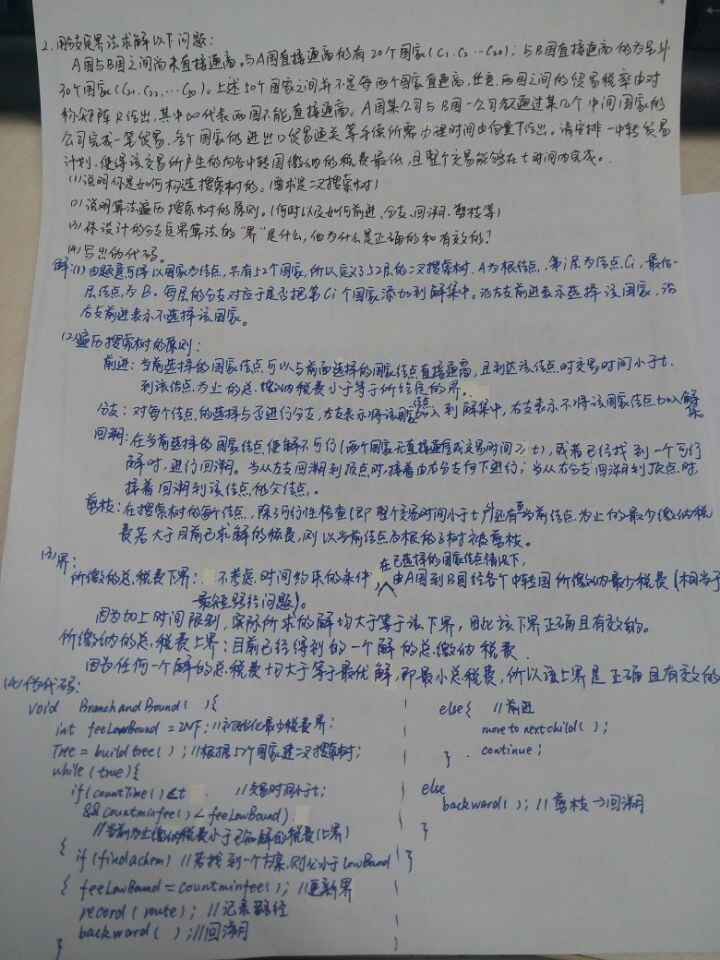 2.用分支定界法求解以下问题:
A国与B国之间尚未直接通商。与A国直接通商的有20个国家(C1.C2…C20);与B国直接通商的为另外
30个国家(C21.C22,…C50)。上述50个国家之间并不是每两个国家直通商,任意两国之间的贸易税率由对
称矩阵R给出,其中∞代表两国不能直接通商。A国某公司与B国一公司欲通过某几个中间国家的
公司完成一笔贸易,各个国家的进出口贸易通关等手续所需办理时间由向量T给出。请安排一中转贸易
计划,使得该交易所产生的向各中转国缴纳的税费最低,且整个交易能够在t时间内完成。
(1)说明你是如何构造搜索树的。(要求是二叉搜索树)
(2)说明算法遍历搜索树的原则。(何时以及如何前进、分支、回溯、剪枝等)
(3)你设计的分支定界算法的"界"是什么,他为什么是正确的和有效的?
(4)写出伪代码。
解:(1)由题意可得以国家为结点,共有52个国家,所以定义了52层的二叉搜索树.A为根结点,第i层为结点Ci,最后一
层结点为B。每层的分支对应于是否把第Ci个国家添加到解集中。沿左支前进表示选择该国家,沿
右支前进表示不选择该国家。
(2)遍历搜索树的原则:
前进:当前选择的国家结点可以与前面选择的国家结点直接通商,且到达该结点时交易时间小于t.
到该结点为止的总缴纳税费小于等于所给定的界.
分支:对每个结点的选择与否进行分支,左支表示将该国家结点加入到解集中,右支表示不将该国家结点加入解集
回溯:在当前选择的国家结点使解不可行(两个国家无直接通商或交易时间≥t),或者已经找到一个可行
解时,进行回溯。当从左支回溯到顶点时,接着由右分支向下进行;当从右分支回溯到顶点时,
接着回溯到该结点的父结点。
剪枝:在搜索树的每个结点,除了可行性检查(即整个交易时间小于t)外还有当前结点为止的最少缴纳税
费若大于目前已求解的税费,则以当前结点为根的子树被剪枝。
(3)界:
所缴的总税费下界:不考虑时间约束的条件,在已选择的国家结点情况下,由A国到B国经各个中转国所缴纳最少税费(相当于
最短路径问题)。
因为加上时间限制,实际所求的解均大于等于该下界,因此该下界正确且有效的。
所缴纳的总税费上界:目前已经得到的一个解的总缴纳税费.
因为任何一个解的总税费均大于等于最优解,即最小总税费,所以该上界是正确且有效的
(4)伪代码:
void BranchandBound( ){
int feeLowBound=INF; //初始化最少税费界;
Tree=buildtree(); //根据52个国家建二叉搜索树;
while(true){
if(countTime()≤t //交易时间小于t;
&&countminfee()<feeLowBound)
//当前为止缴纳税费小于已知解的税费(上界)
{ if(findachem) //若找到一个方案,则必小于LowBand
{ feeLowBand=countminfee(); //更新界
record(route); //记录路径
backward( ); //回溯
}
else{ //前进
movetonextchild( );
continue;
}
}
else
backward(); //剪枝→回溯
}
}